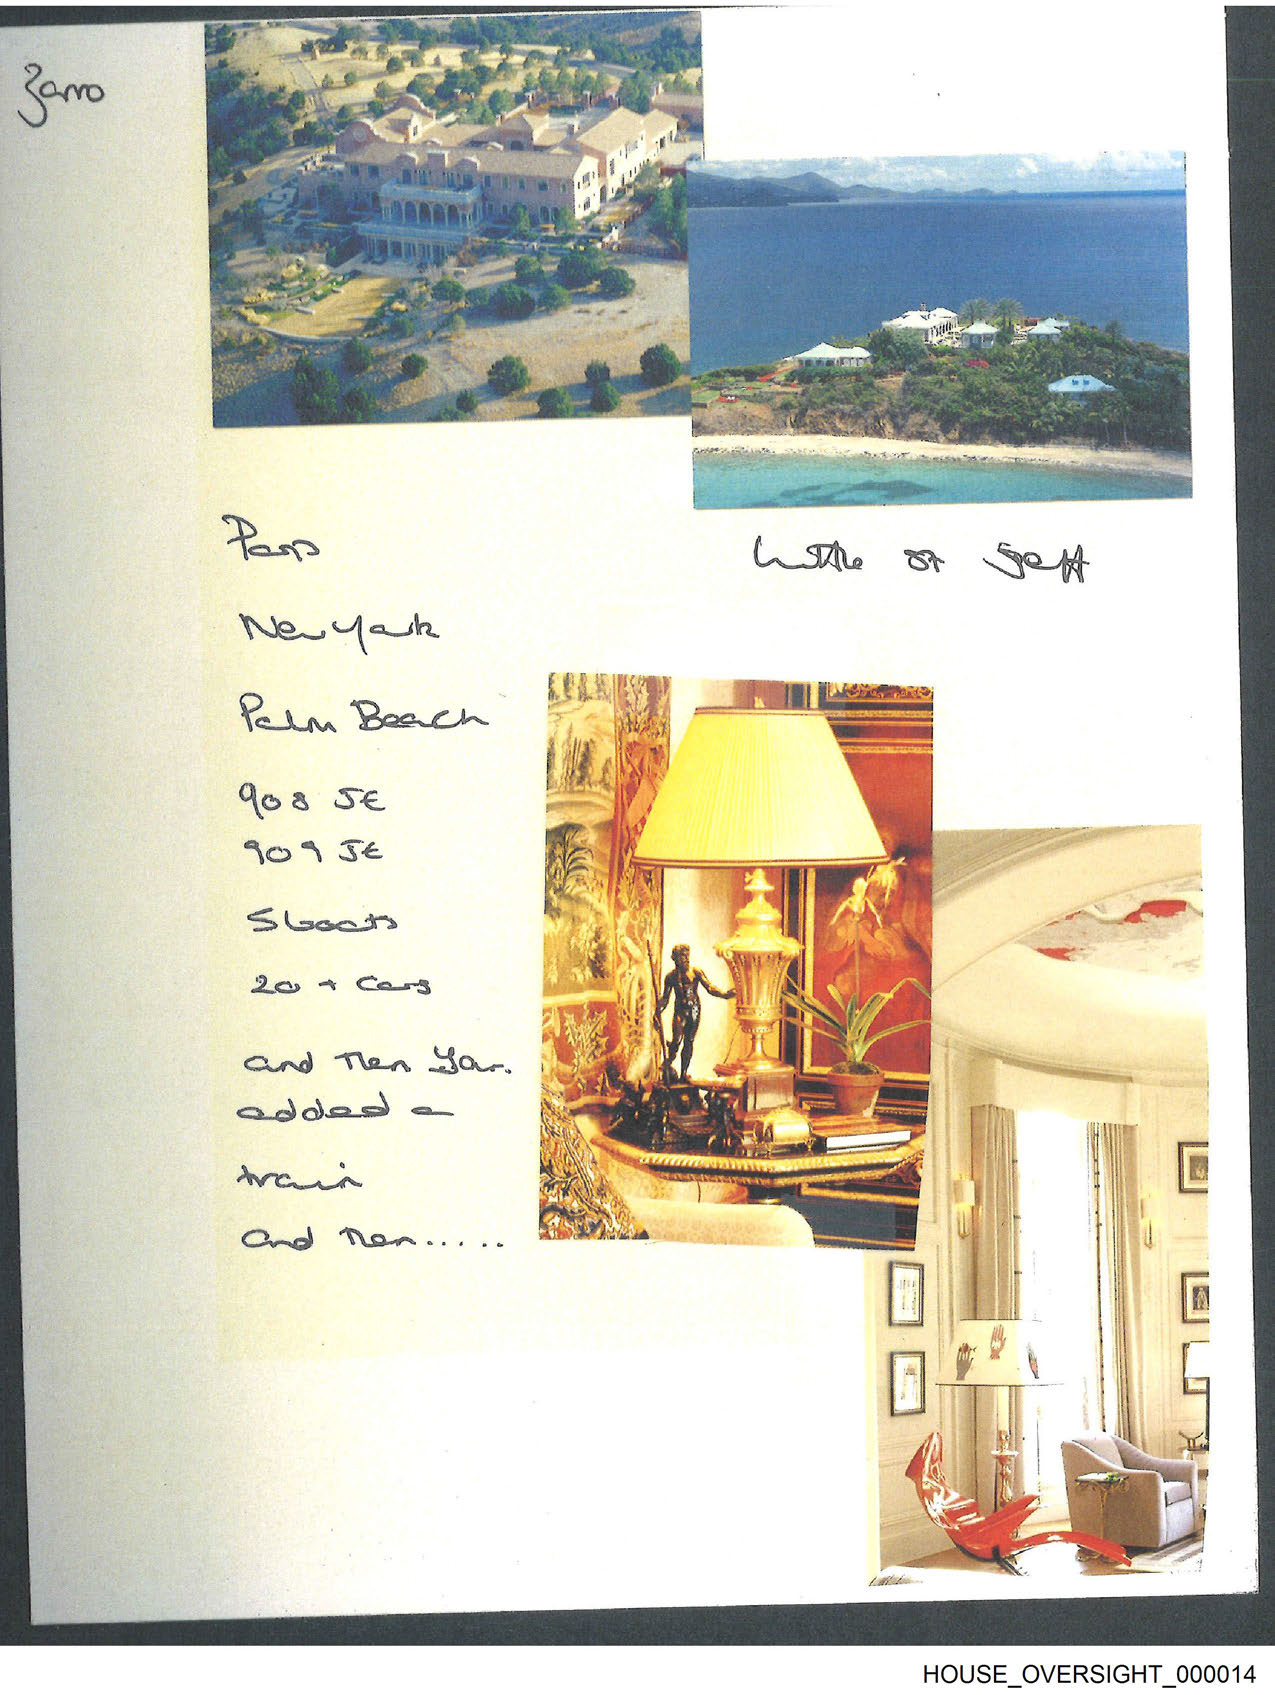 Zorro
Little St Jeff
Paris
New York
Palm Beach
908 JE
909 JE
5 boats
20 + Cars
and then you.
added a
train
and then.....
HOUSE_OVERSIGHT_000014